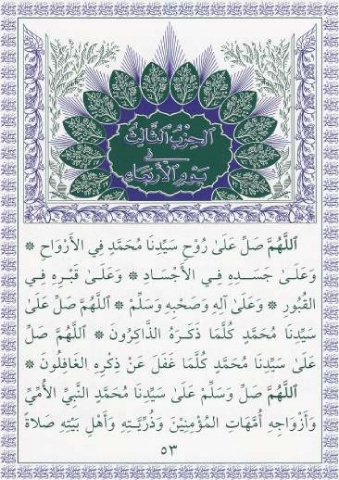 الحِزْبُ الثَّالِثُ
فِي
يَوْمِ الْأَرْبِعَاءِ
اَللَّهُمَّ صَلِّ عَلَىٰ رُوْحِ سَيِّدِنَا مُحَمَّدٍ فِي الْأَرْوَاحِ ❊
وَعَلَىٰ جَسَدِهِ فِي الْأَجْسَادِ ❊ وَعَلَىٰ قَبْرِهِ فِي
الْقُبُورِ ❊ وَعَلَىٰ آلِهِ وَصَحْبِهِ وَسَلِّمْ ❊ اَللَّهُمَّ صَلِّ عَلَىٰ
سَيِّدِنَا مُحَمَّدٍ كُلَّمَا ذَكَرَهُ الذَّاكِرُونَ ❊ اَللَّهُمَّ صَلِّ
عَلَىٰ سَيِّدِنَا مُحَمَّدٍ كُلَّمَا غَفَلَ عَنْ ذِكْرِهِ الْغَافِلُونَ ❊
اَللَّهُمَّ صَلِّ وَسَلِّمْ عَلَىٰ سَيِّدِنَا مُحَمَّدٍ النَّبِيِّ الْأُمِّيِّ
وَأَزْوَاجِهِ أُمَّهَاتِ الْمُؤْمِنِيْنَ وَذُرِّيَّتِهِ وَأَهْلِ بَيْتِهِ صَلَاةً
٥٣